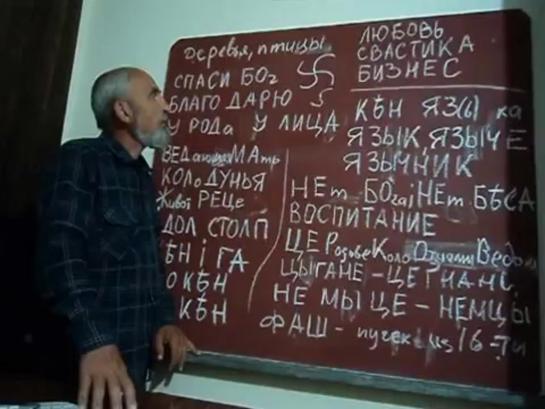 деревья, птицы
СПАСИ БОг
БЛАГО ДАРЮ
У РОДа У ЛИЦА
ВЕДающаяМАть
КОЛоДУНЬЯ
Живої РЕЦе
ДОЛ СТОЛП
ѢН І ГА
О КѢН
КѢН
ЛЮБОВЬ
СВАСТИКА
БИЗНЕС
КѢН ЯЗ(Ы) ка
ЯЗЫК, ЯЗЫЧЕ
ЯЗЫЧНИК
НЕт БОга, НЕт БѢСА
ВОСПИТАНИЕ
ЦЕ РодовеКоло
ЦЫГАНЕ - ЦЕ
НЕ МЫ ЦЕ - НЕМЦЫ
ФАШ - пучек из 16-ти